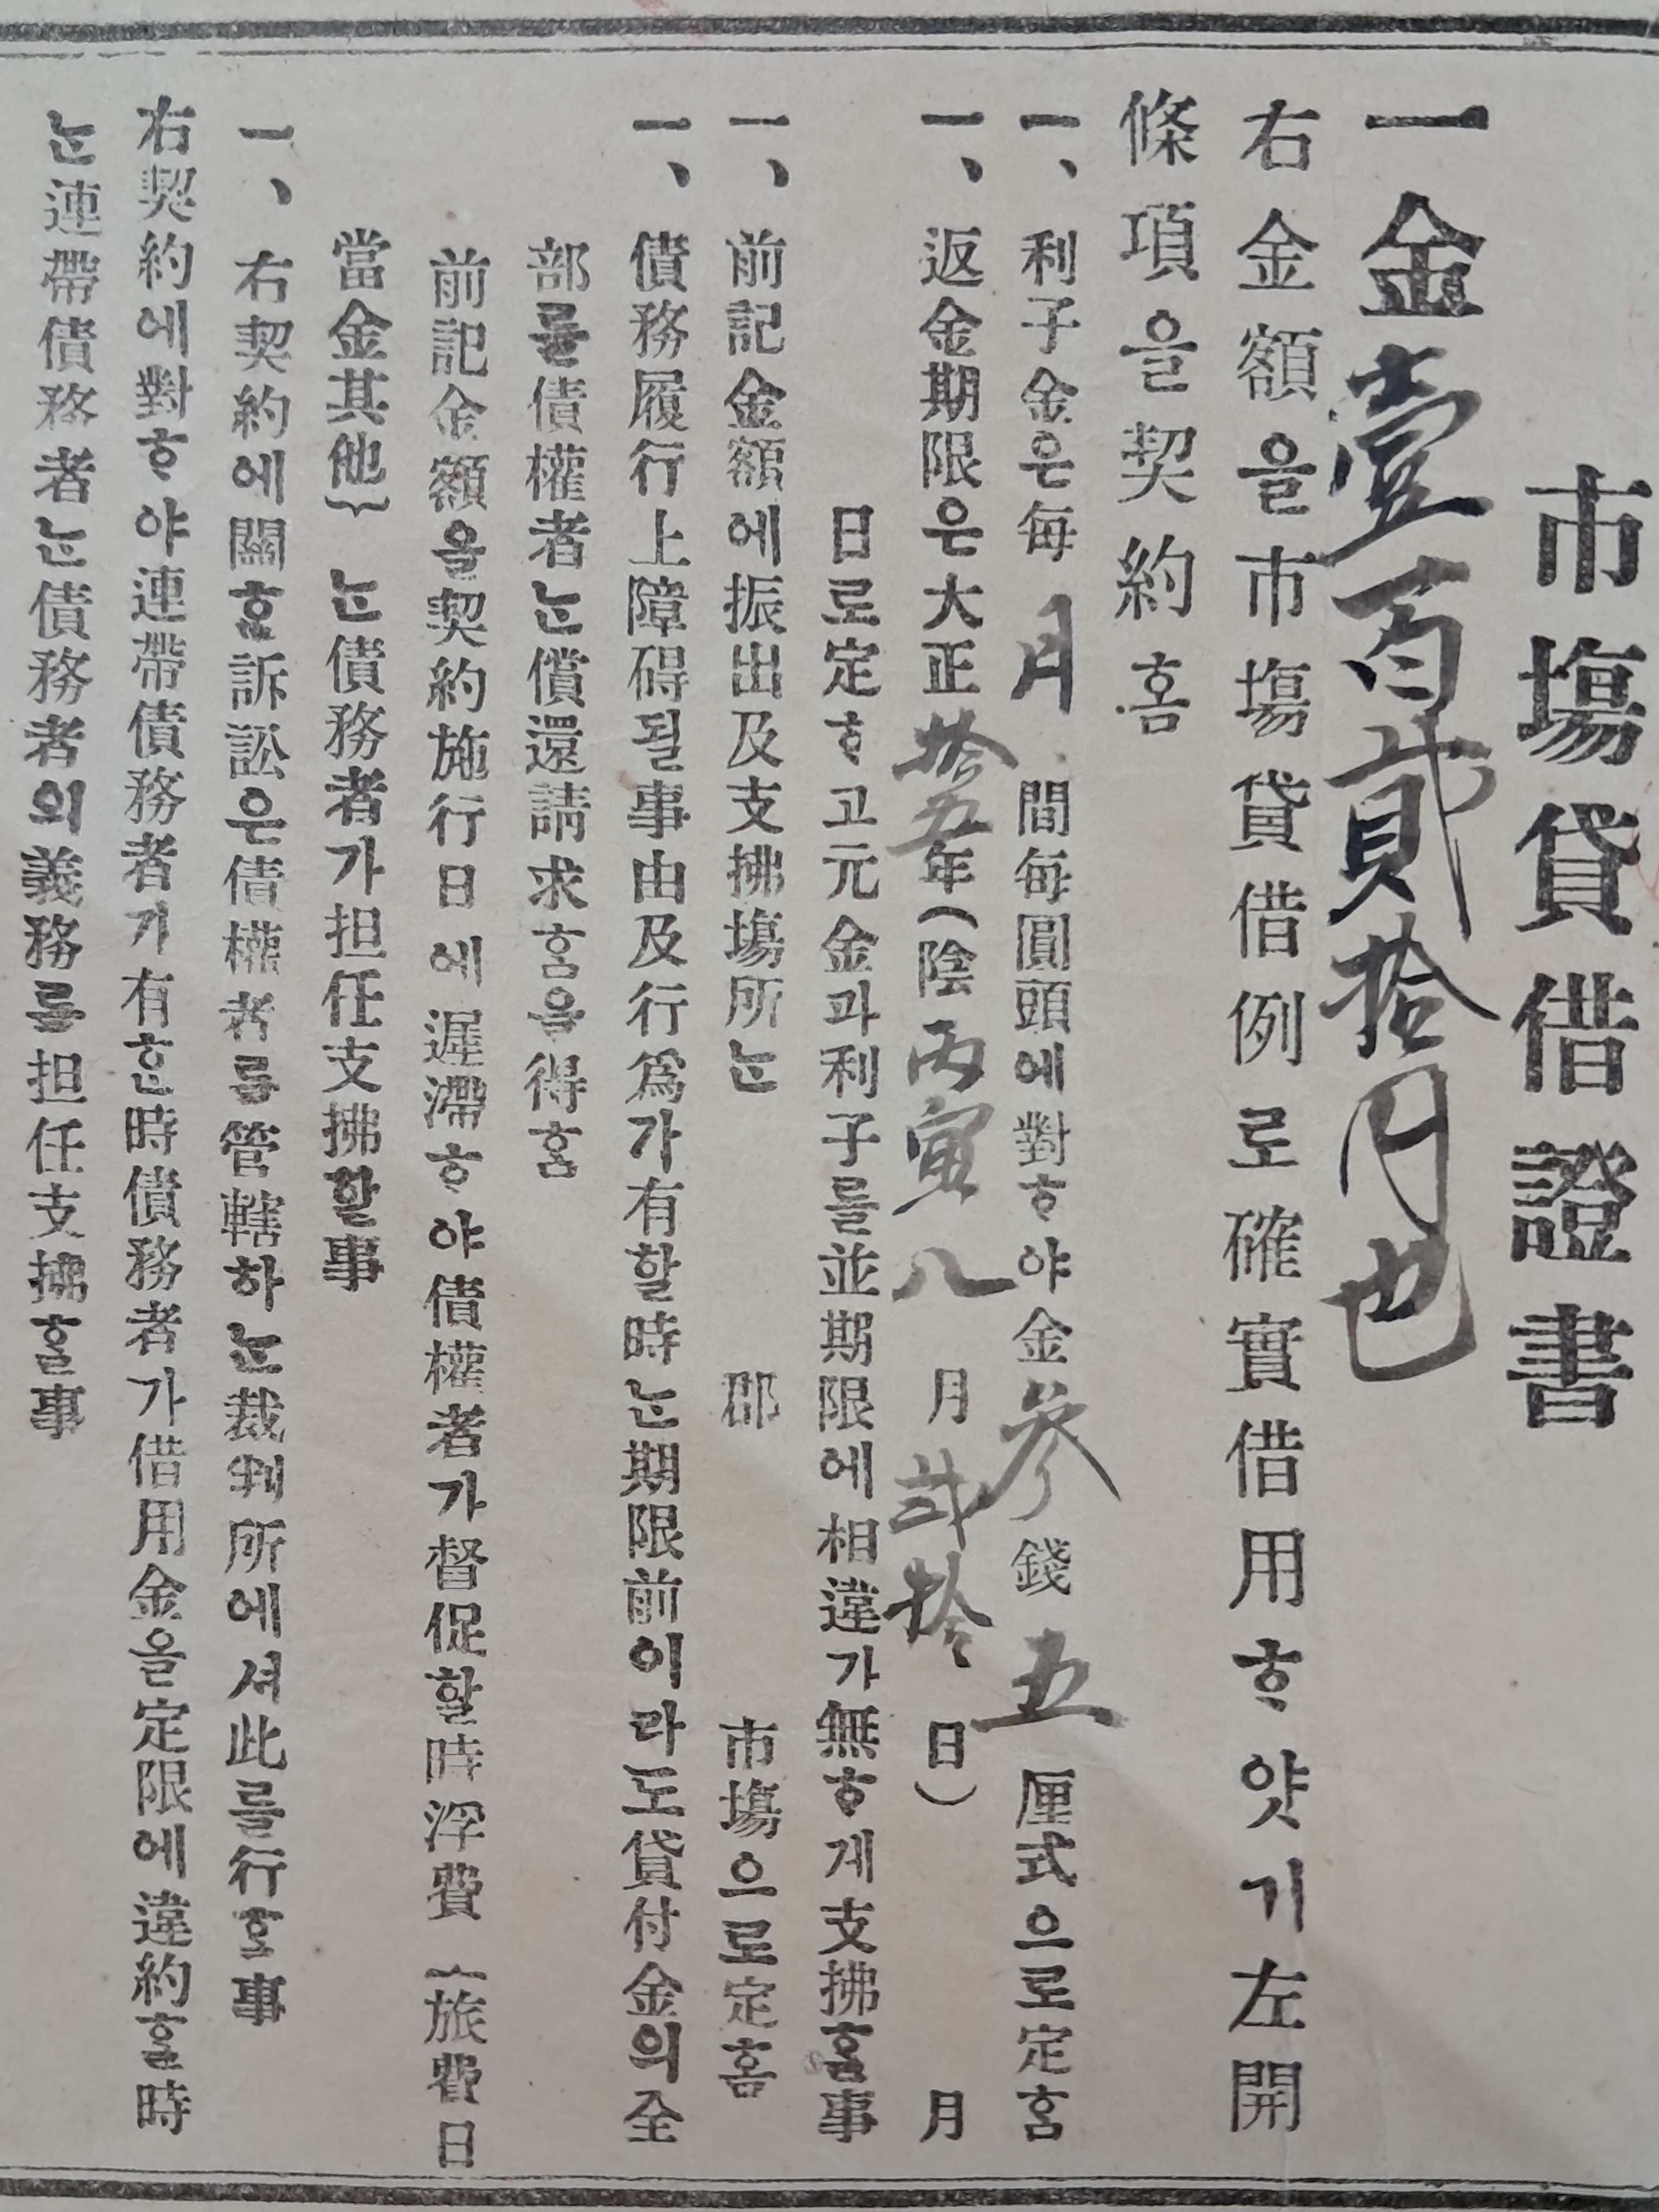 市場貸借證書
一金壹百貳拾円也
右金額을市場貸借例로確實借用ᄒᆞ얏기左開
條項을契約홈
一、利子金은每月間每圓頭에對ᄒᆞ야金參錢五厘式으로定홈
一、返金期限은大正拾五年(陰丙寅八月貳拾日)月
日로定ᄒᆞ고元金과利子를並期限에相違가無ᄒᆞ게支拂홈事
一、前記金額에振出及支拂場所ᄂᆞᆫ郡市場으로定홈
一、債務履行上障碍될事由及行爲가有할時ᄂᆞᆫ期限前이라도貸付金의全
部를債權者ᄂᆞᆫ償還請求홈을得홈
前記金額을契約施行日에遲滯ᄒᆞ야債權者가督促할時浮費{旅費日
當金其他}ᄂᆞᆫ債務者가担任支拂할事
一、右契約에關ᄒᆞᆫ訴訟은債權者를管轄하ᄂᆞᆫ裁判所에셔此를行ᄒᆞᆯ事
右契約에對ᄒᆞ야連帶債務者기有ᄒᆞᆫ時債務者가借用金을定限에違約ᄒᆞᆯ時
ᄂᆞᆫ連帶債務者ᄂᆞᆫ債務者의義務를担任支拂ᄒᆞᆯ事